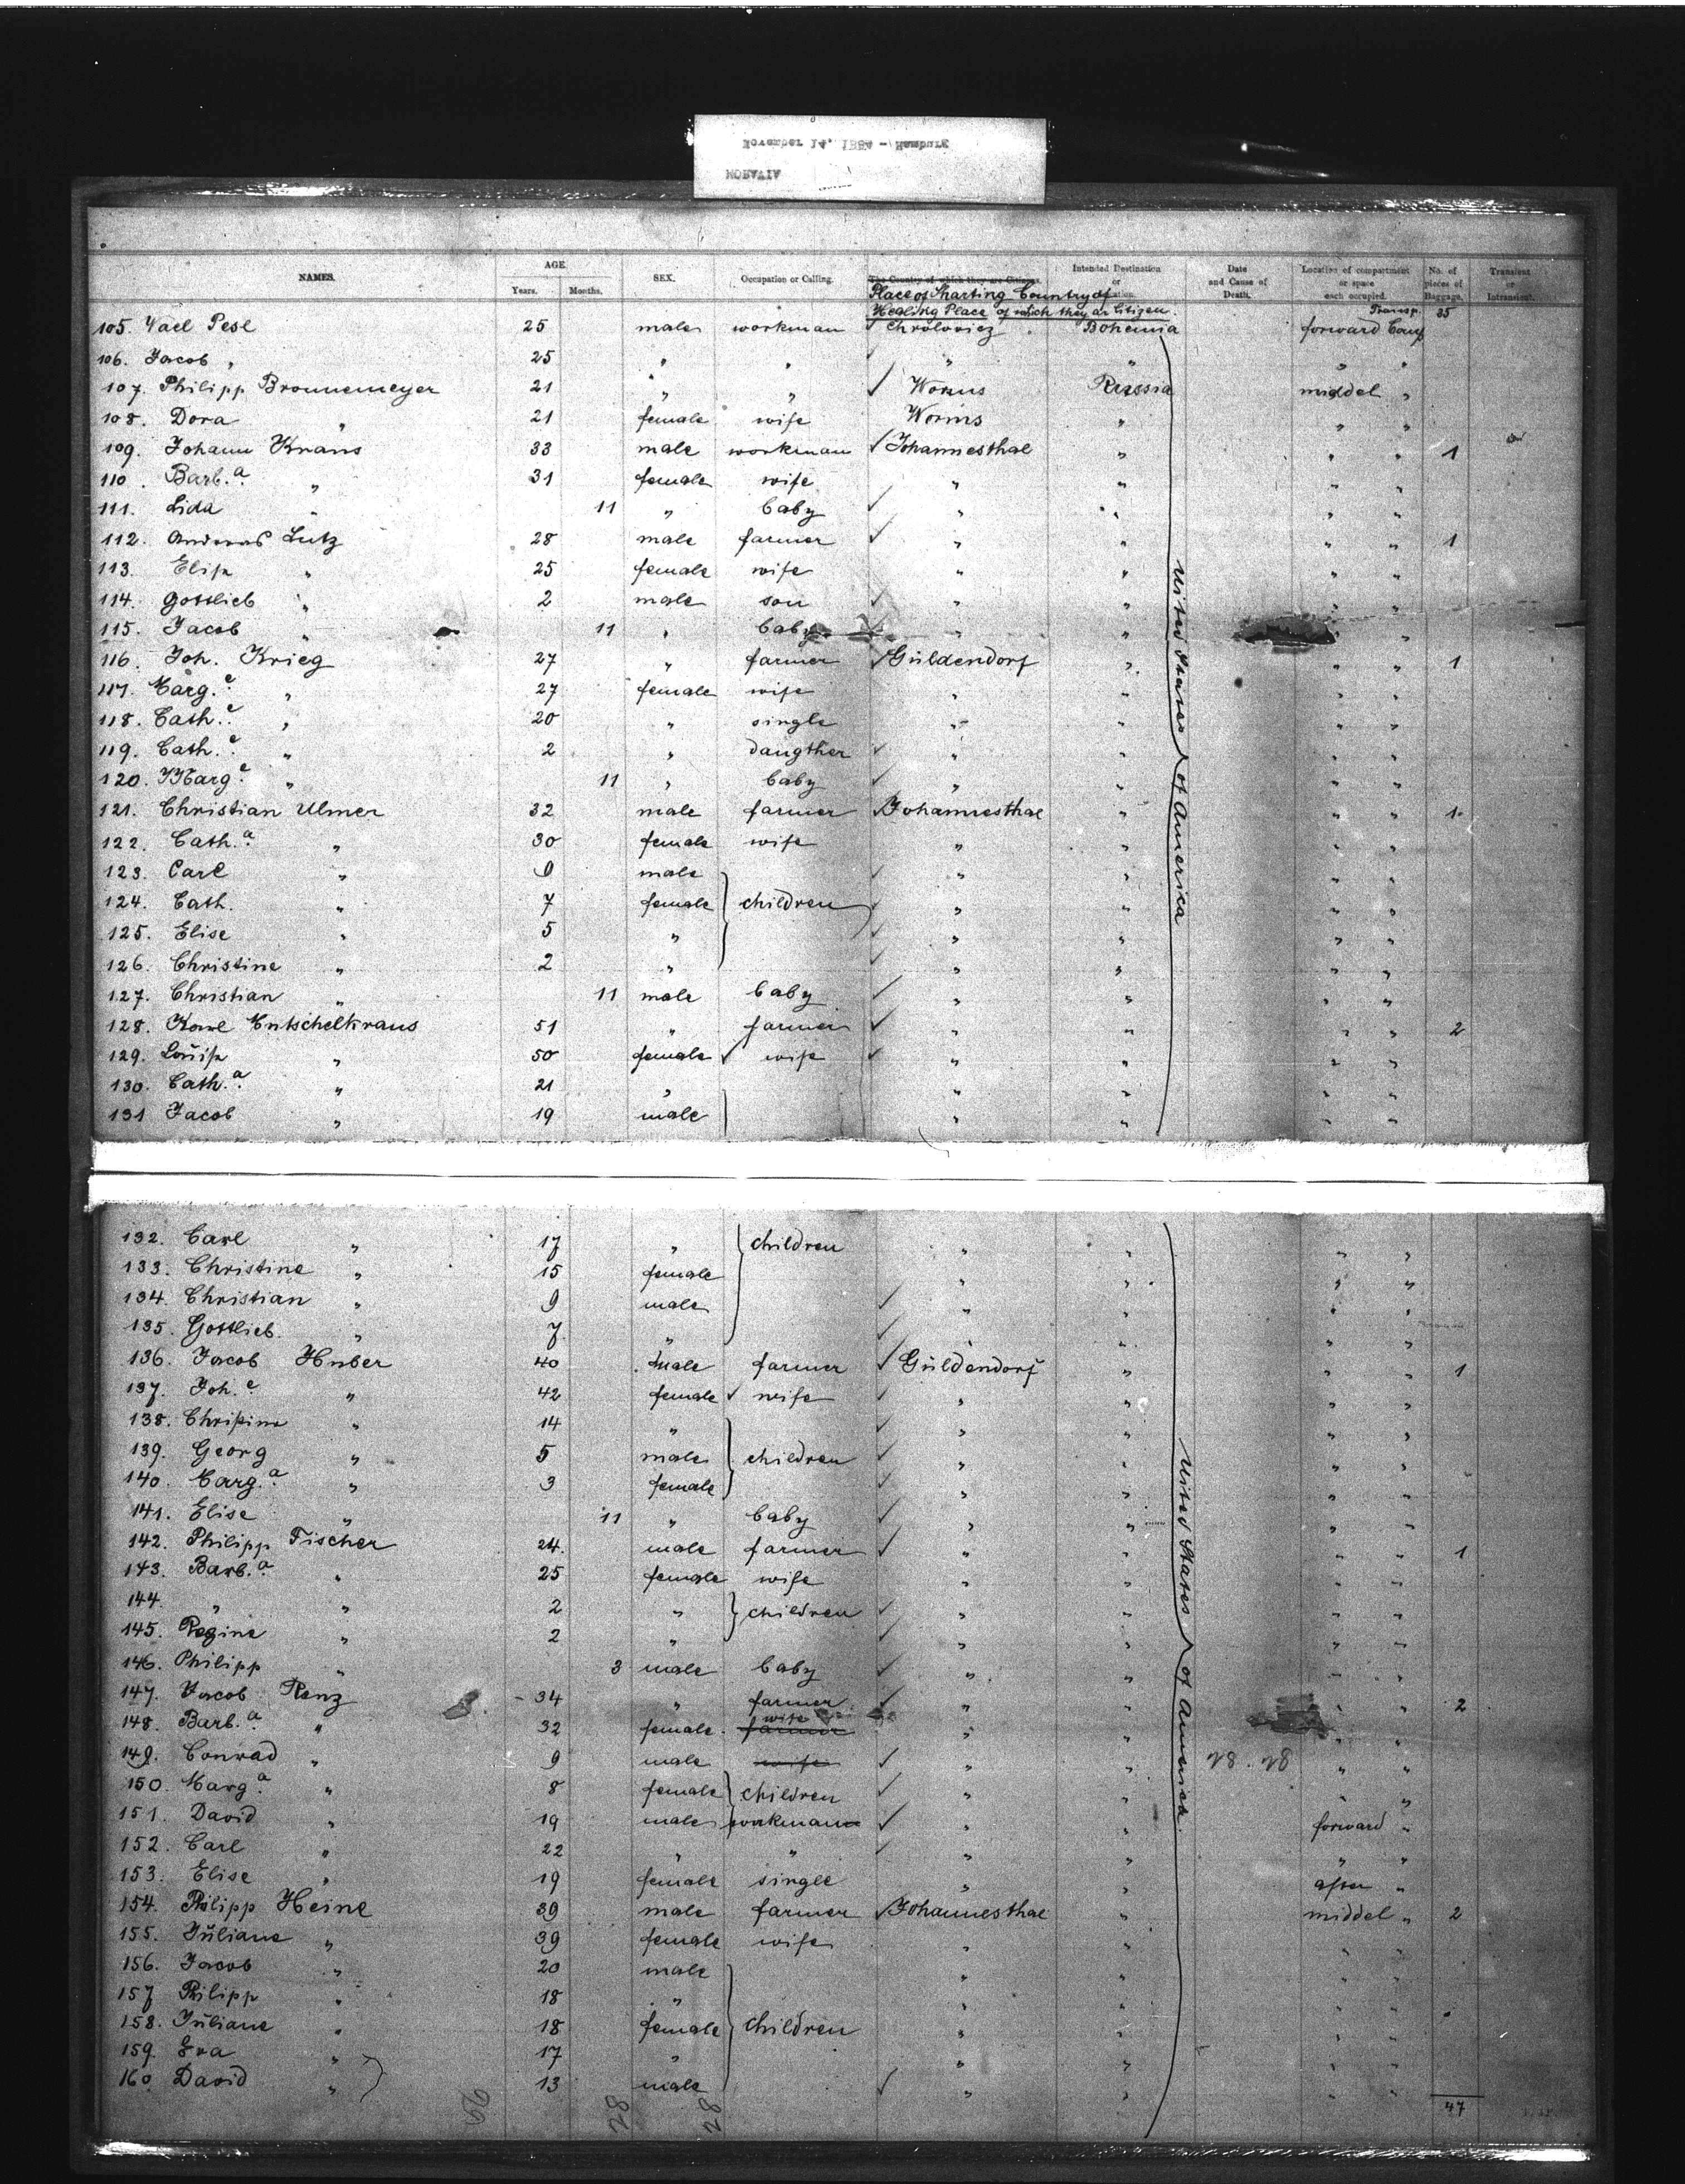 November 14, 1884 - Hamburg
MORAVIA
NAMES. AGE. Years. Months. SEX. Occupation or Calling. The Country of which they are Citizens. Intended Destination or Location. Date and Cause of Death. Location of compartment or space each occupied. No. of pieces of Baggage. Transient or Intransient.
Place of Starting Country of
Healing Place of which they are Citizen. Transp. 35
105. Pesl 25 male workman ✓ Bohemia forward Comp
106. Jacob " 25 " " ✓ " " " "
107. Philipp Bronnemeyer 21 " " ✓ Worms Russia middel "
108. Dora " 21 female wife Worms " " "
109. Johann Kraus 33 male workman ✓ Johannesthal " " " 1
110. Barb.a " 31 female wife " " " "
111. Lida " 11 " baby ✓ " " " "
112. Andreas Lutz 28 male farmer ✓ " " " " 1
113. Elise " 25 female wife " " " "
114. Gottlieb " 2 male son ✓ " " " "
115. Jacob " 11 " baby ✓ " " "
116. Joh. Krieg 27 " farmer ✓ Güldendorf " " " 1
117. Marg.e " 27 female wife " " " "
118. Cath.e " 20 " single " " " "
119. Cath.e " 2 " daugther ✓ " " " "
120. Marg.e " 11 " baby ✓ " " " "
121. Christian Ulmer 32 male farmer Johannesthal " " " 1
122. Cath.a " 30 female wife " " " "
123. Carl " 9 male ✓ " " " "
124. Cath. " 7 female children ✓ " " " "
125. Elise " 5 " ✓ " " " "
126. Christine " 2 " ✓ " " " "
127. Christian " 11 male baby ✓ " " " "
128. Karl Entschelkraus 51 " farmer ✓ " " " " 2
129. Louise " 50 female ✓ wife ✓ " " " "
130. Cath.a " 21 " " " " "
131 Jacob " 19 male " " " "
United States of America
132. Carl " 17 " children " " " "
133. Christine " 15 female " " " "
134. Christian " 9 male ✓ " " " "
135. Gottlieb " 7 " ✓ " " "
136. Jacob Huber 40 male farmer ✓ Güldendorf " " " 1
137. Joh.e " 42 female ✓ wife ✓ " " " "
138. Christine " 14 " ✓ " " " "
139. Georg " 5 male children ✓ " " " "
140. Marg.a " 3 female ✓ " " " "
141. Elise " 11 " baby ✓ " " " "
142. Philipp Fischer 24 male farmer ✓ " " " " 1
143. Barb.a " 25 female wife " " " "
144. " " 2 " children ✓ " " " "
145. Regine " 2 " ✓ " " " "
146. Philipp " 3 male baby ✓ " " " "
147. Jacob Renz 34 " farmer ✓ " " " " 2
148. Barb.a " 32 female farmer wife " " " "
149. Conrad " 9 male wife ✓ " " 28. 28 " "
150. Marg.a " 8 female children ✓ " " " "
151. David " 19 male workman ✓ " " forward "
152. Carl " 22 " " ✓ " " " "
153. Elise " 19 female single " " after "
154. Philipp Heine 39 male farmer ✓ Johannesthal " middel " 2
155. Juliane " 39 female wife " " " "
156. Jacob " 20 male " " " "
157 Philipp " 18 " " " " "
158. Juliane " 18 female children " " " "
159. Eva " 17 " " " " "
160. David " 13 male ✓ " " " "
United States of America
28 28 47